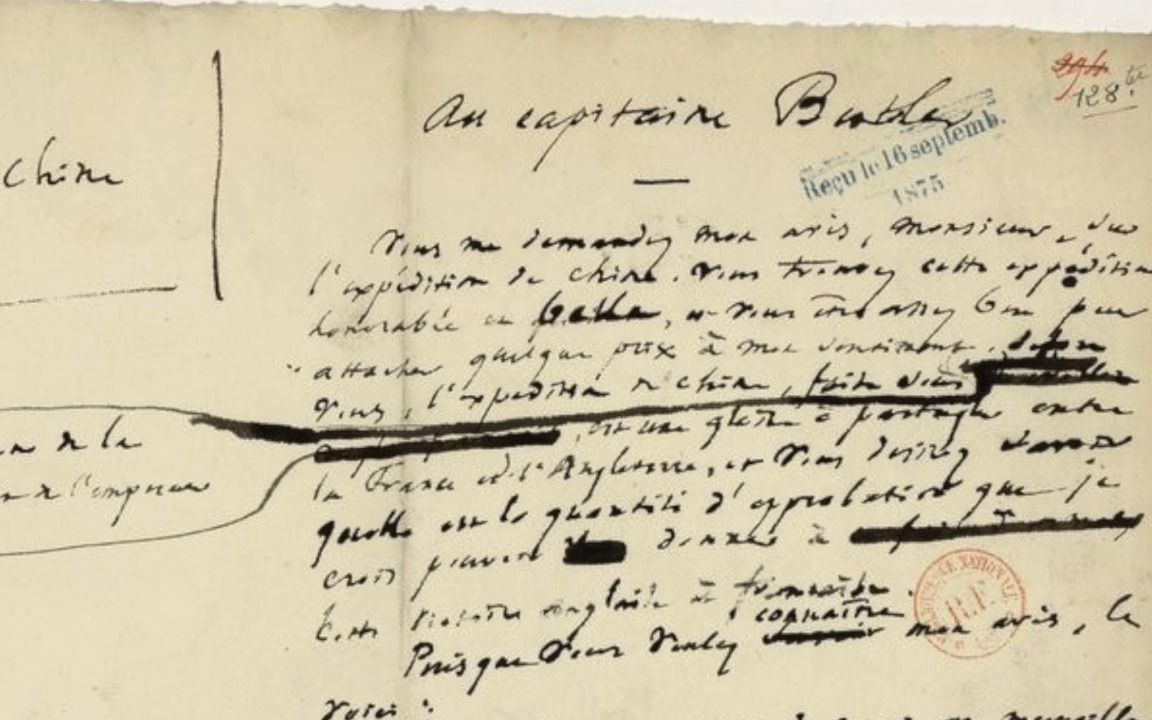 294
128 ter
Au capitaine Butler
Reçu le 16 septemb.
1875
Chine
Vous me demandez mon avis, monsieur, sur
l'expédition de Chine. Vous trouvez cette expédition
honorable et belle, et vous êtes assez bon pour
attacher quelque prix à mon sentiment. Selon
vous, l'expédition de Chine, faite sous
, est une gloire à partager entre
la France et l'Angleterre, et vous désirez savoir
quelle est la quantité d'approbation que je
crois pouvoir donner à
cette victoire anglaise et française.
connaître
Puisque vous voulez mon avis, le
voici :
de la
de l'empereur
BIBLIOTHEQUE NATIONALE
R.F.